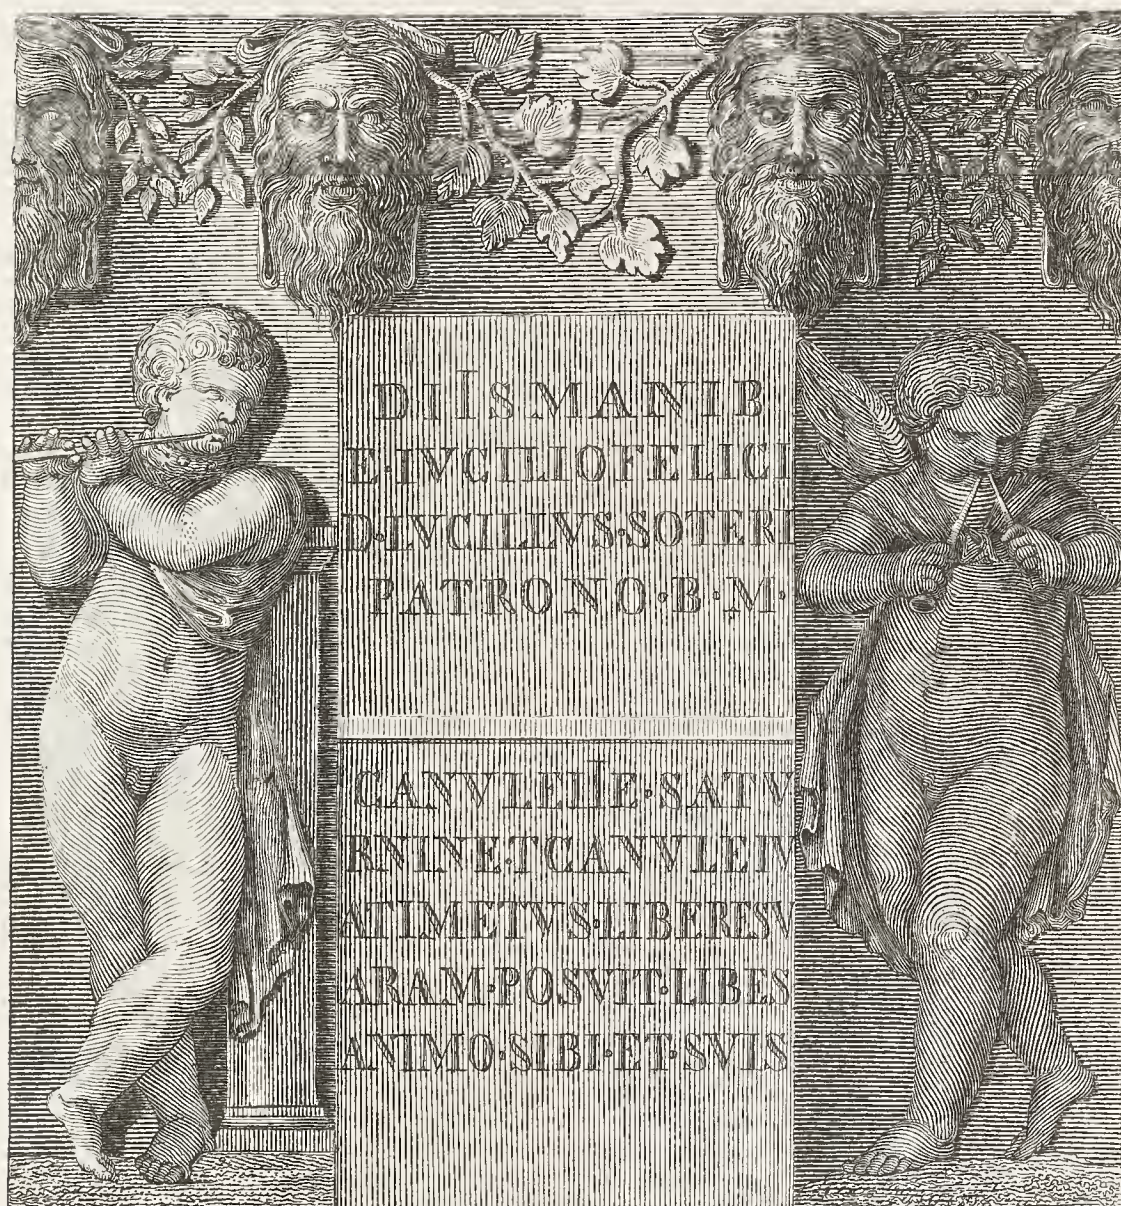 DIIS MANIB
E·IVCILIO FELICI
D·LVCILLVS·SOTERI
PATRONO·B·M·
CANVLEIIE·SATV
RNINE·TCANVLEIV
ATIMETVS·LIBERESV
ARAM·POSVIT·LIBES
ANIMO·SIBI·ET·SVIS